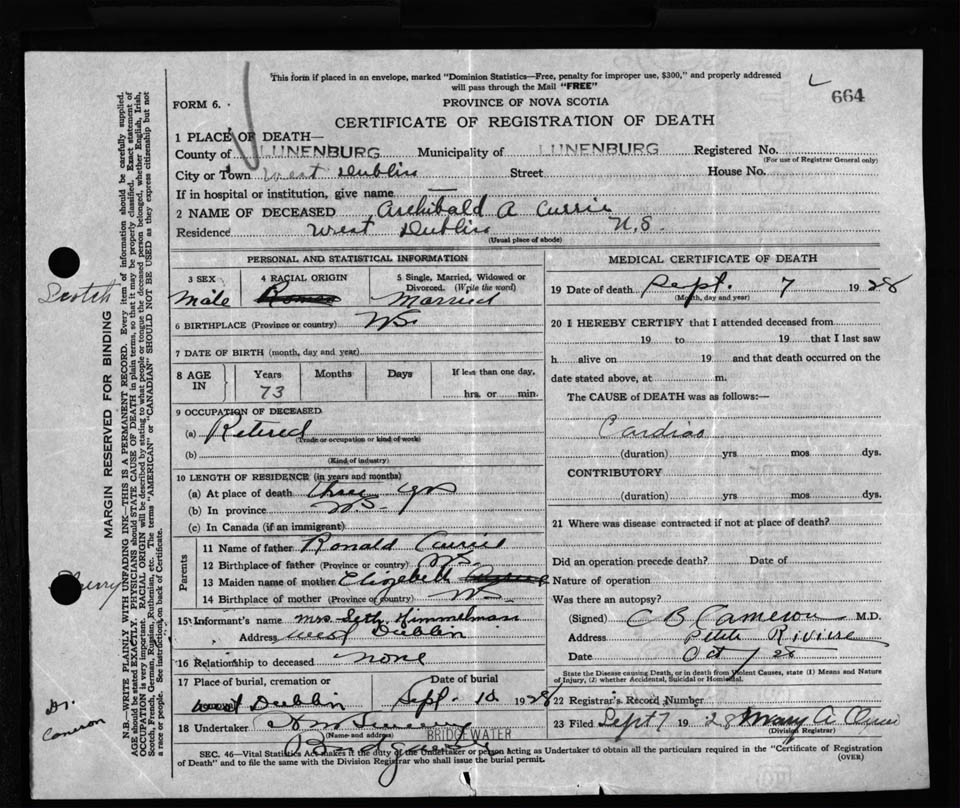 This form if placed in an envelope, marked "Dominion Statistics—Free, penalty for improper use, $300," and properly addressed
will pass through the Mail "FREE"
664
FORM 6.
PROVINCE OF NOVA SCOTIA
CERTIFICATE OF REGISTRATION OF DEATH
1 PLACE OF DEATH—
County of LUNENBURG Municipality of LUNENBURG Registered No.
(For use of Registrar General only)
City or Town West Dublin Street House No.
If in hospital or institution, give name —
2 NAME OF DECEASED Archibald A Currie
Residence West Dublin N.S.
(Usual place of abode)
PERSONAL AND STATISTICAL INFORMATION
3 SEX 4 RACIAL ORIGIN 5 Single, Married, Widowed or
Divorced. (Write the word)
Scotch
Male Married
6 BIRTHPLACE (Province or country) NS
7 DATE OF BIRTH (month, day and year)
8 AGE IN Years Months Days If less than one day,
73 hrs. or min.
9 OCCUPATION OF DECEASED
(a) Retired
(Trade or occupation or kind of work)
(b)
(Kind of industry)
10 LENGTH OF RESIDENCE (in years and months)
(a) At place of death three yrs
(b) In province NS.
(c) In Canada (if an immigrant)
Parents
11 Name of father Ronald Currie
12 Birthplace of father (Province or country) NS
13 Maiden name of mother Elizabeth
14 Birthplace of mother (Province or country) NS.
15 Informant's name Mrs. Seth Himmelman
Address West Dublin
16 Relationship to deceased none
17 Place of burial, cremation or Date of burial
West Dublin Sept. 10 1928
18 Undertaker
(Name and address) BRIDGEWATER
Bridgewater
MEDICAL CERTIFICATE OF DEATH
19 Date of death Sept. 7 1928
(Month, day and year)
20 I HEREBY CERTIFY that I attended deceased from
19 to 19 that I last saw
h alive on 19 and that death occurred on the
date stated above, at m.
The CAUSE of DEATH was as follows:—
Cardiac
(duration) yrs mos dys.
CONTRIBUTORY
(duration) yrs mos dys.
21 Where was disease contracted if not at place of death?
Did an operation precede death? Date of
Nature of operation
Was there an autopsy?
(Signed) C B Cameron M.D.
Address Petite Riviere
Date Oct / 28
State the Disease causing Death, or in death from Violent Causes, state (1) Means and Nature
of Injury, (2) whether Accidental, Suicidal or Homicidal.
22 Registrar's Record Number
23 Filed Sept 7 1928 Mary A
(Division Registrar)
SEC. 46—Vital Statistics Act makes it the duty of the Undertaker or person acting as Undertaker to obtain all the particulars required in the "Certificate of Registration
of Death" and to file the same with the Division Registrar who shall issue the burial permit.
(OVER)
MARGIN RESERVED FOR BINDING
N.B.—WRITE PLAINLY WITH UNFADING INK—THIS IS A PERMANENT RECORD. Every item of information should be carefully supplied.
AGE should be stated EXACTLY. PHYSICIANS should STATE CAUSE OF DEATH in plain terms, so that it may be properly classified. Exact statement of
OCCUPATION is very important. RACIAL ORIGIN will be described by stating to what people or tongue the deceased person belonged, whether English, Irish,
Scotch, French, German, Russian, Ruthenian, etc. The terms "AMERICAN" or "CANADIAN" SHOULD NOT BE USED as they express citizenship but not
a race or people. See instructions on back of Certificate.
Dr.